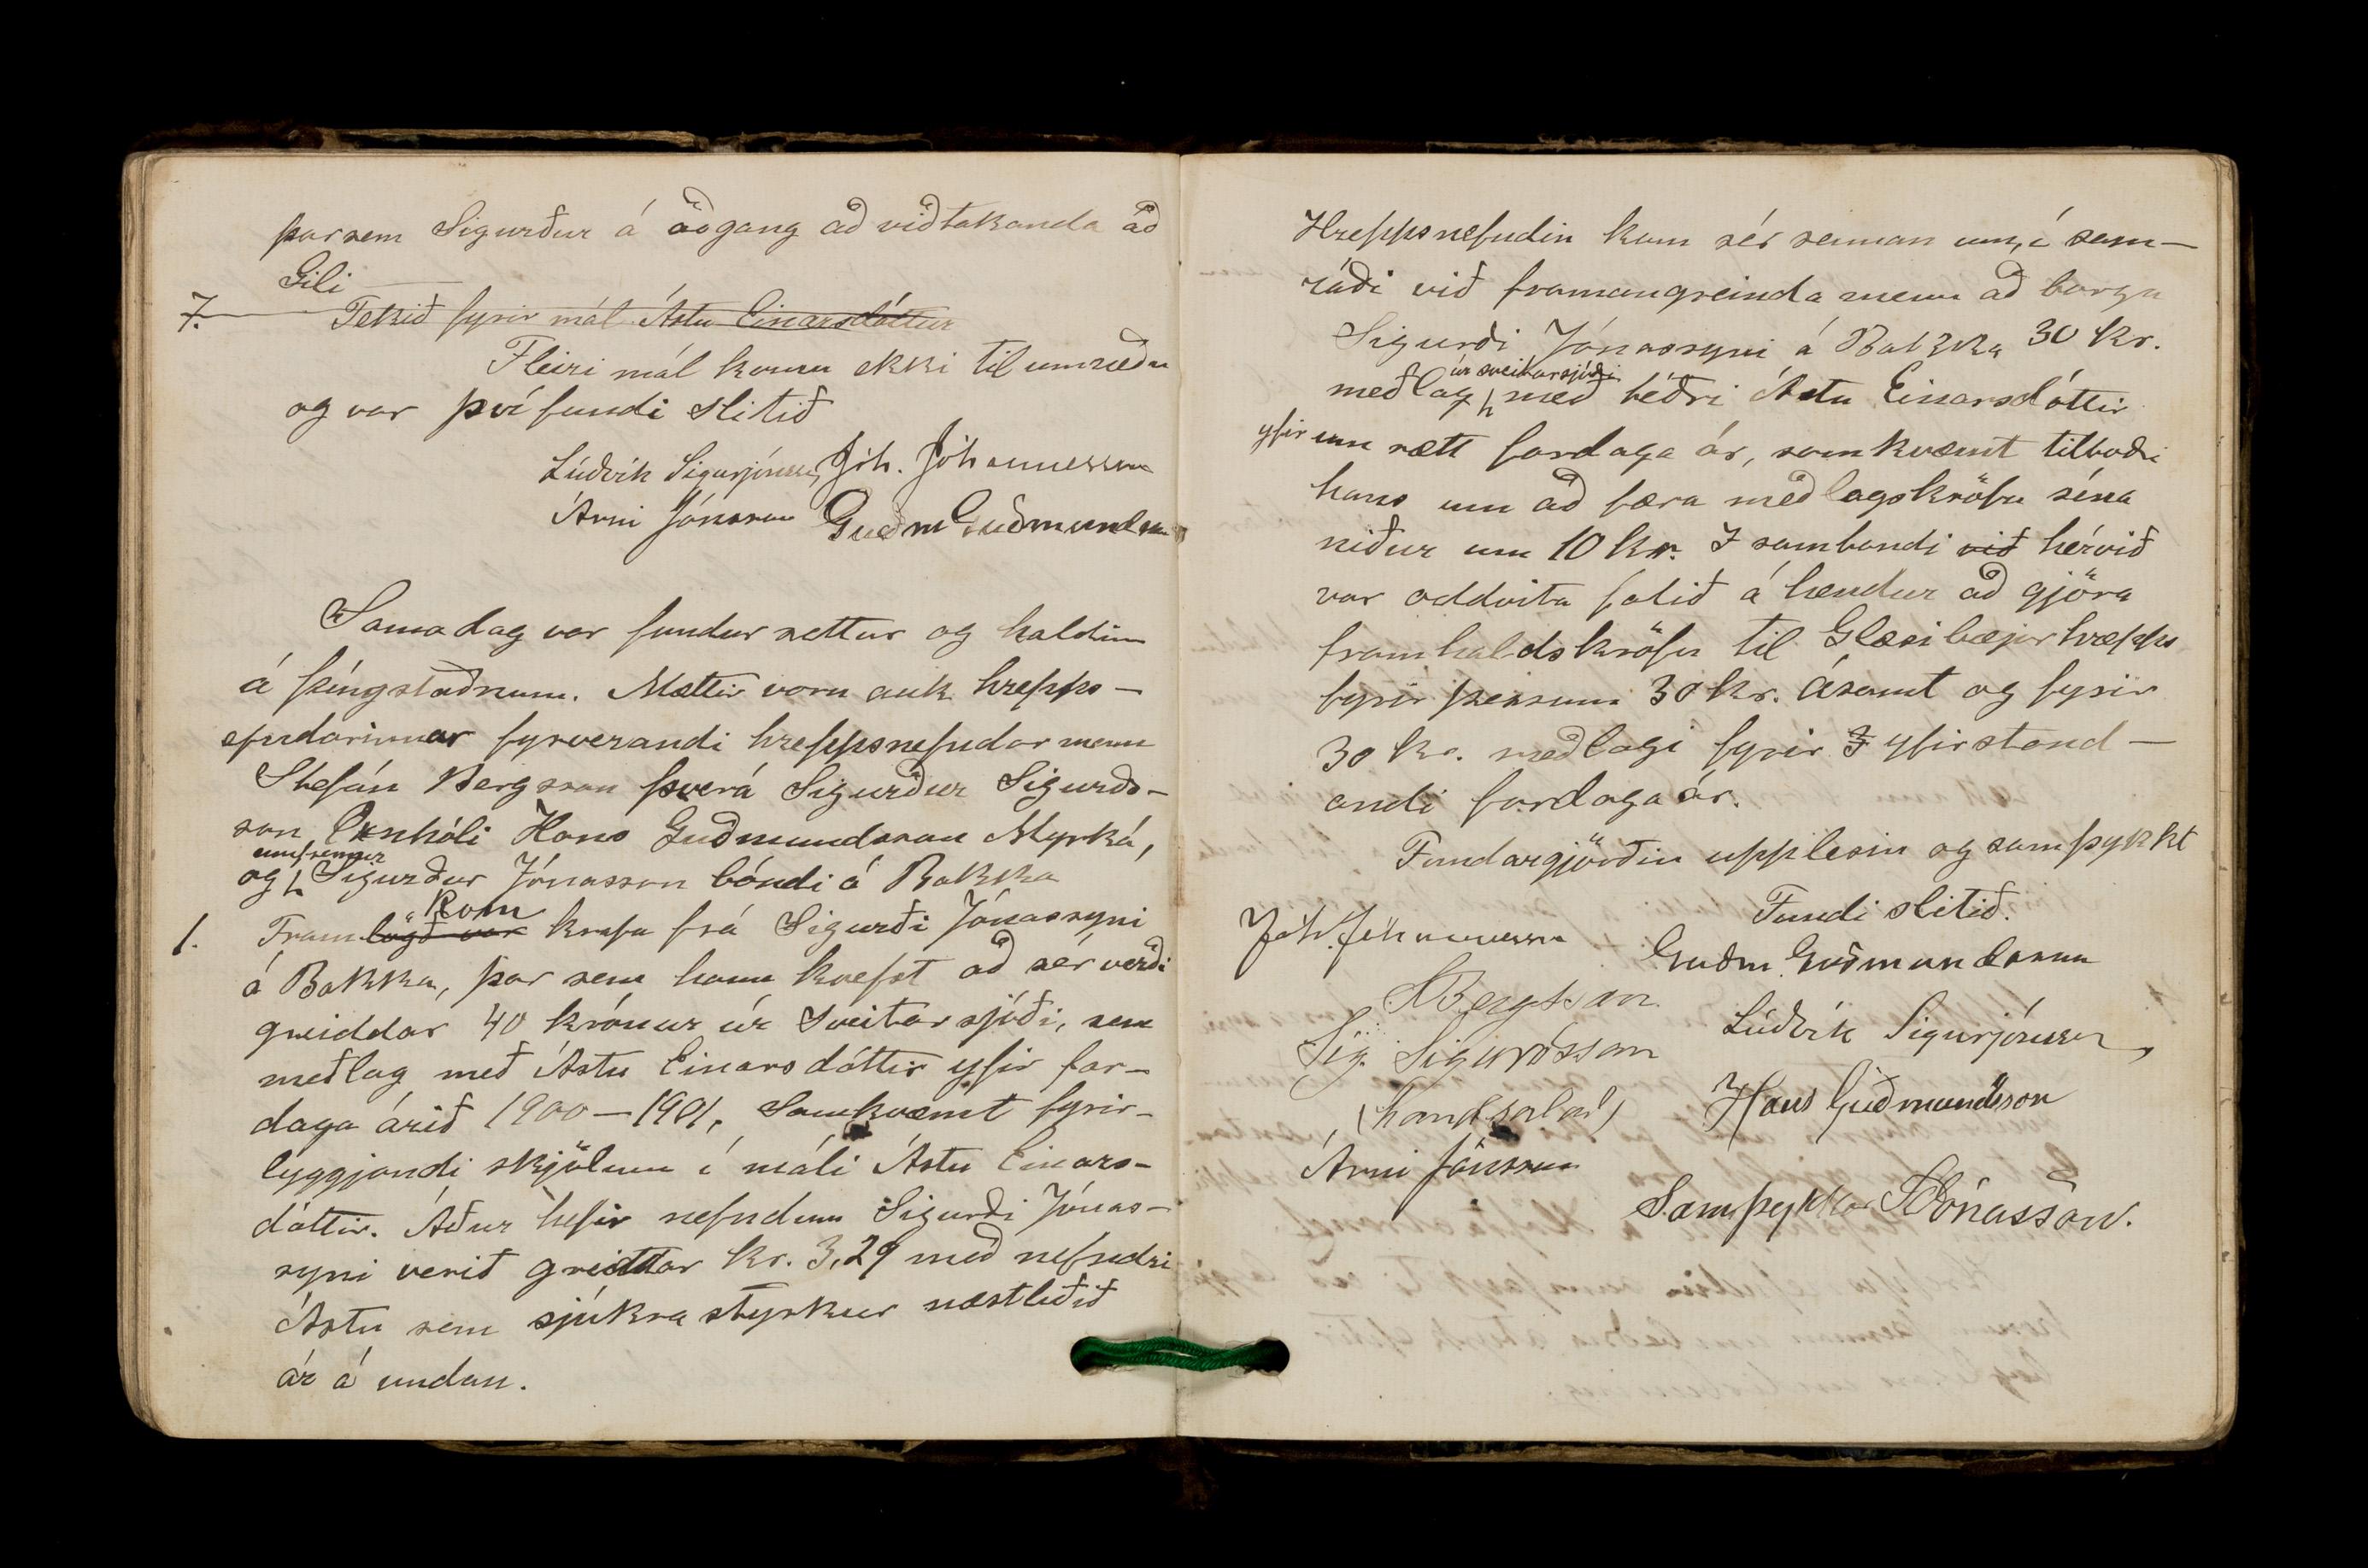 þar sem Sigurður á aðgang að viðtakanda að
Gili
7. Tekið fyrir mál Ástu Einarsdóttur
Fleiri mál komu ekki til umræðu
og var því fundi slitið
Lúðvík Sigurjónsson Jóh. Jóhannesson
Árni Jónsson Guðm Guðmundsson
Sama dag var fundur settur og haldinn
á þingstaðnum. Mættir voru auk hrepps-
efndarinnar fyrverandi hreppsnefndar menn
Stefán Bergsson Þverá Sigurður Sigurðs-
son Öxnhóli Hans Guðmundsson Myrká,
ennfremur
og Sigurður Jónasson bóndi á Bakka
Kom
1. Framlögð var krafa frá Sigurði Jónassyni
á Bakka, þar sem hann krefst að sér verði
greiddar 40 krónur úr Sveitarsjóði, sem
meðlag með Ástu Einarsdóttir yfir far-
daga árið 1900-1901, Samkvæmt fyrir-
lyggjandi skjölum í máli Ástu Einars-
dóttir. Áður hefir nefndum Sigurði Jónas-
syni verið greiddar kr. 3,29 með nefndri
Ástu sem sjúkra styrkur næstliðið
ár á undan.
Hreppsnefndin kom sér saman um, í sam-
ráði við framangreinda menn að borga
Sigurði Jónassyni á Bakka 30 kr.
úr sveitarsjóði
meðlag með téðri Ástu Einarsdóttir
yfir um rætt fardaga ár, samkvæmt tilboði
hans um að færa meðlagskröfu sína
niður um 10 kr. I sambandi við hérvið
var oddvita falið á hendur að gjöra
framhaldskröfu til Glæsibæjarhrepps
fyrir þessum 30 kr. ásamt og fyrir
30 kr. meðlagi fyrir yfirstand-
andi fardaga ár.
Fundargjörðin upplesin og samþykkt
Fundi slitið.
Jóh. Jóhannesson Guðm. Guðmundsson
SBergsson
Lúðvík Sigurjónsson
Sig. Sigurðsson
(handsalað) Hans Guðmundsson
Árni Jónsson
Samþykkar SJónasson.